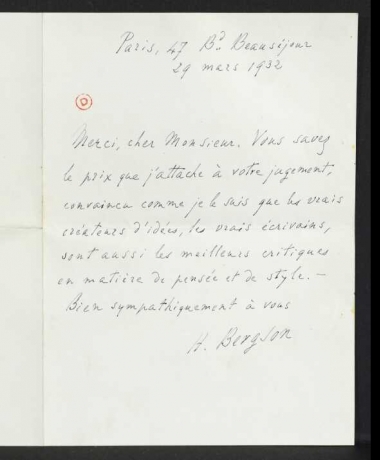 Paris, 47 Bd. Beauséjour
29 mars 1932
Merci, cher Monsieur. Vous savez
le prix que j'attache à votre jugement,
convaincu comme je le suis que les vrais
créateurs d'idées, les vrais écrivains,
sont aussi les meilleurs critiques
en matière de pensée et de style. —
Bien sympathiquement à vous
H. Bergson